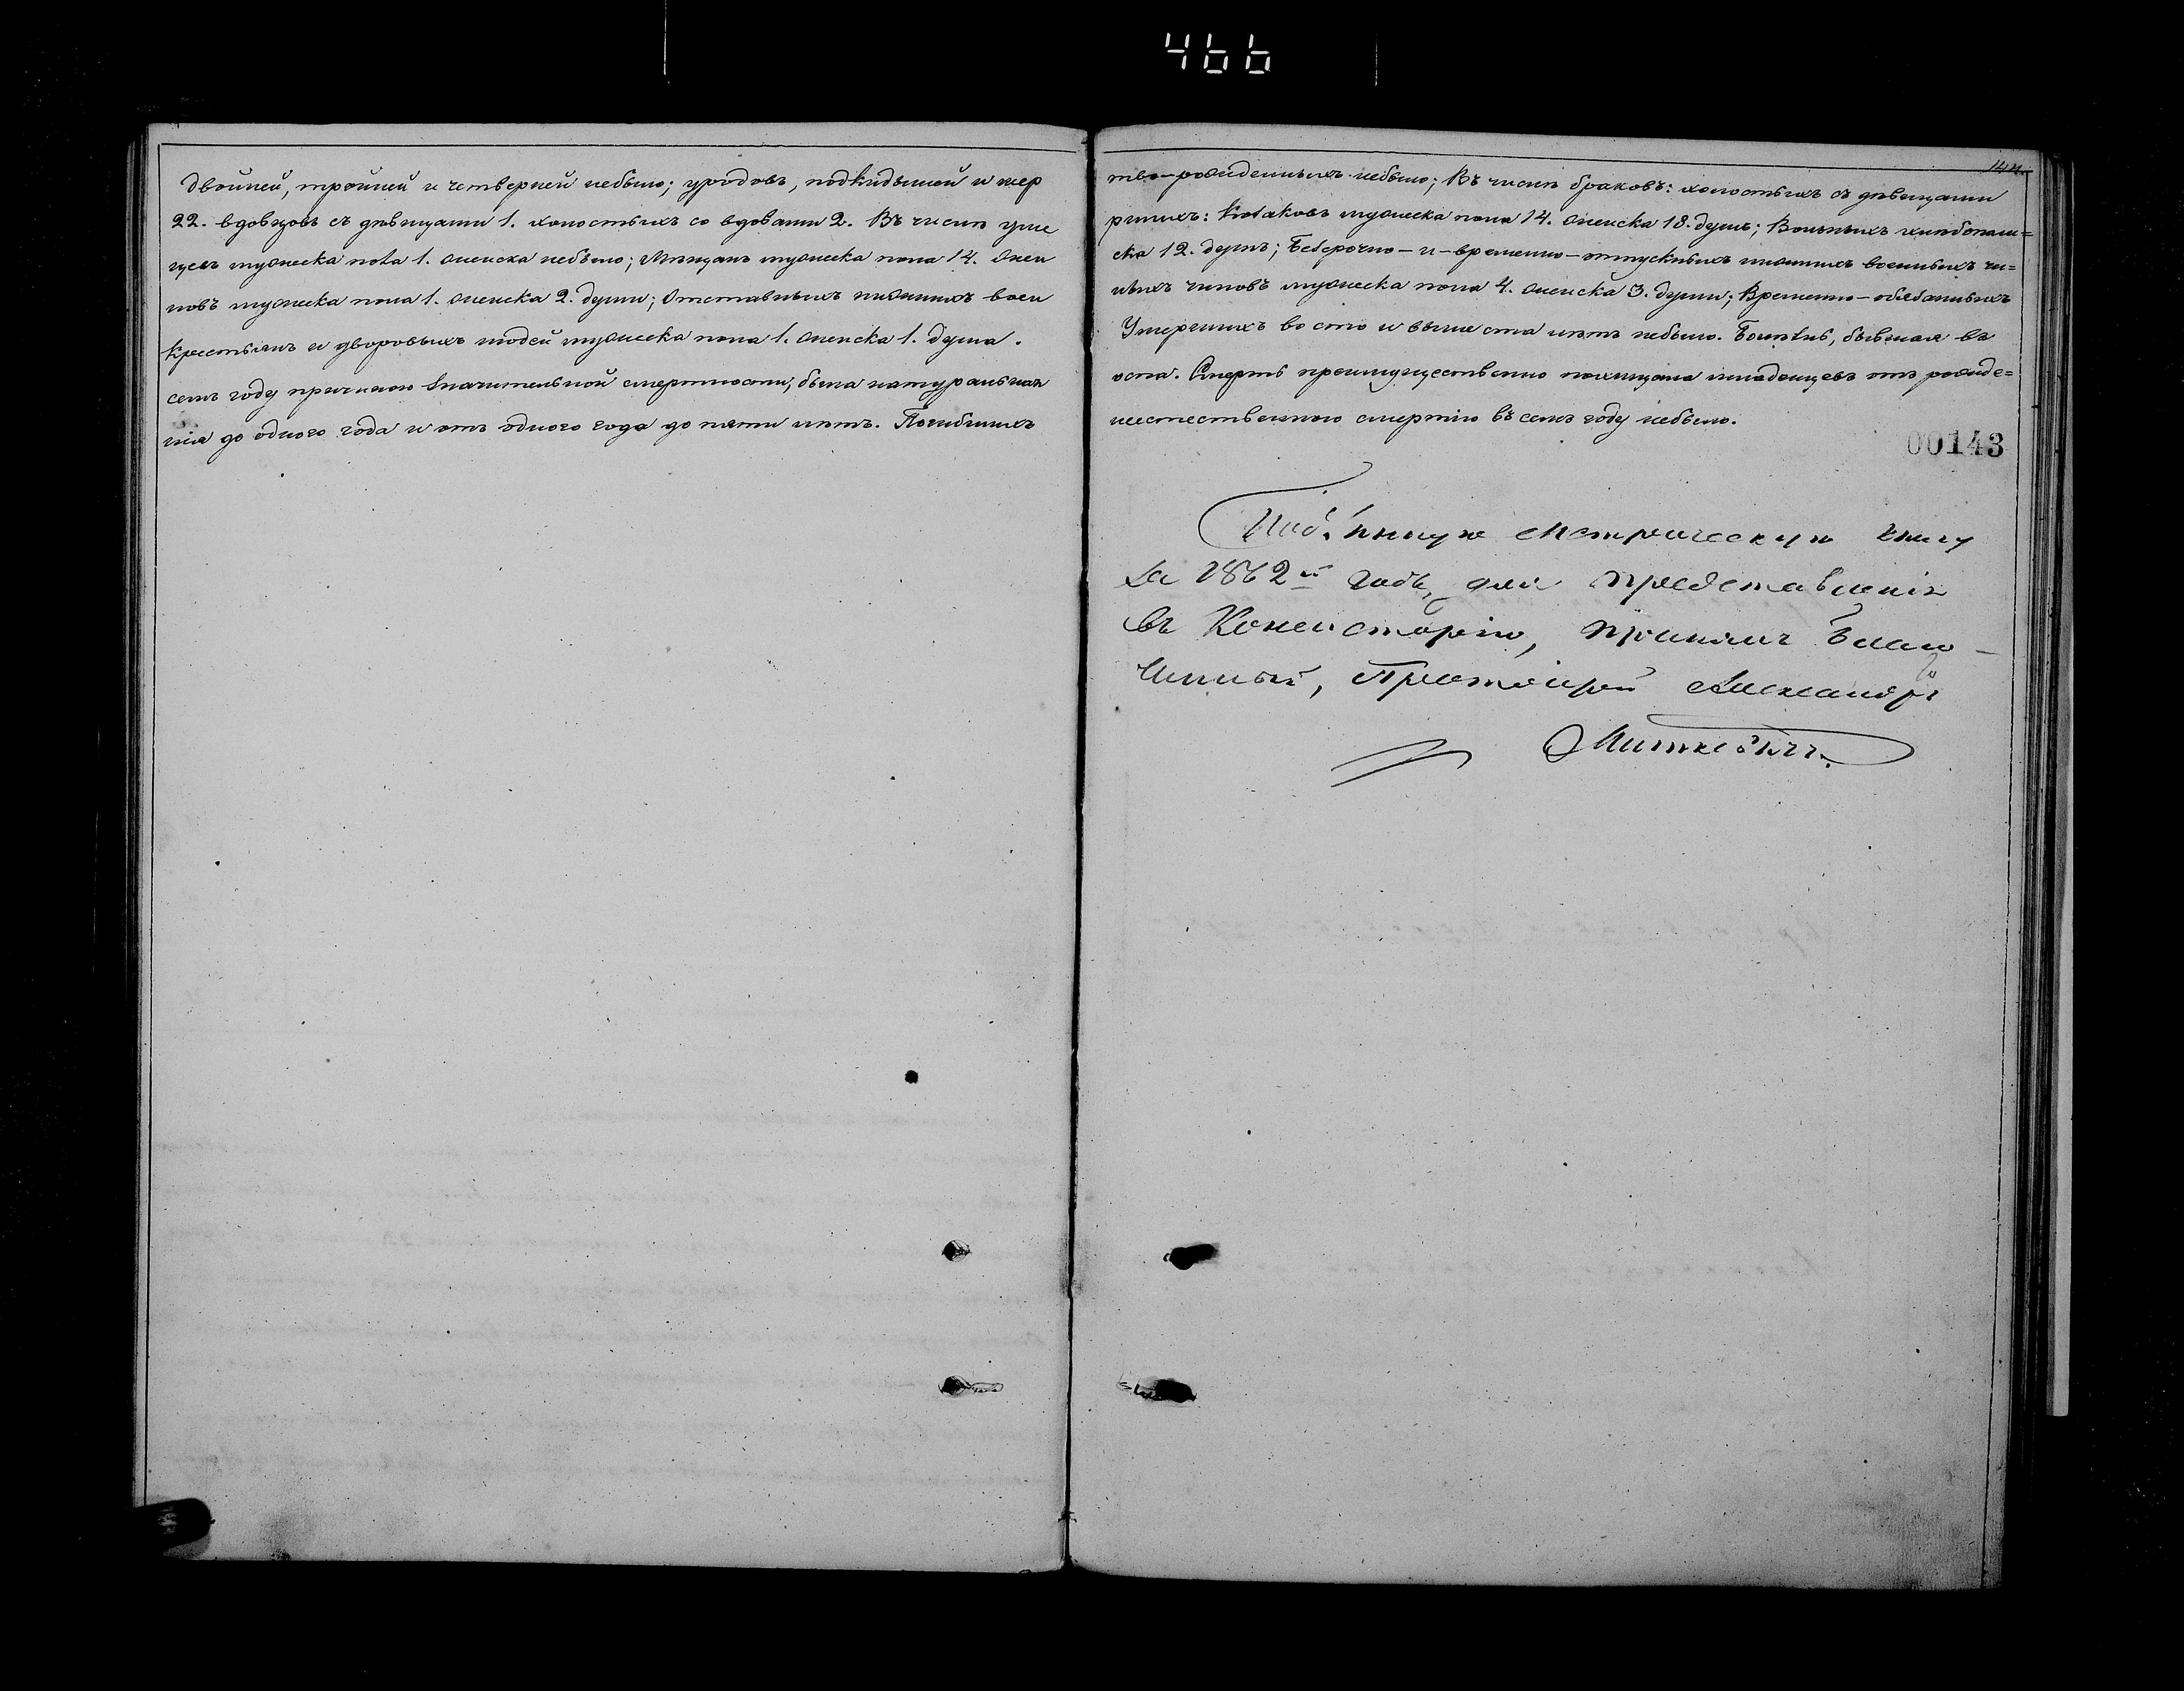 466
144.
двойней, тройней и четверней небыло; уродовъ, подкидышей и мер
тво-рожденныхъ небыло; Въ числѣ браковъ: холостыхъ съ дѣвицами
22. вдовцовъ съ дѣвицами 1. холостыхъ со вдовами 2. Въ числѣ уме
ршихъ: Козаковъ мужеска пола 14. женска 18. душъ; Вольныхъ хлѣбопаш=
цевъ мужеска пола 1. женска небыло; Мѣщанъ мужеска пола 14. жен
ска 12. душъ; Безсрочно-и-временно-отпускныхъ нижнихъ военныхъ чи=
новъ мужеска пола 1. женска 2. души; Отставныхъ нижнихъ воен
ныхъ чиновъ мужеска пола 4. женска 3. души; Временно-обязанныхъ
крестьянъ и дворовыхъ людей мужеска пола 1. женска 1. душа.
Умершихъ во сто и выше ста лѣтъ небыло. Болѣзнь, бывшая въ
семъ году причиною значительной смертности, была натуральная
оспа. Смерть преимущественно похищала младенцевъ отъ рожде=
нія до одного года и отъ одного года до пяти лѣтъ. Погибшихъ
неестественною смертію въ семъ году небыло.
00143
Подлинную Метрическую книгу
за 1862й годъ, для представленія
въ Консисторію, принялъ Благо-
чинный, Протоіерей Александръ
Миткевичъ.